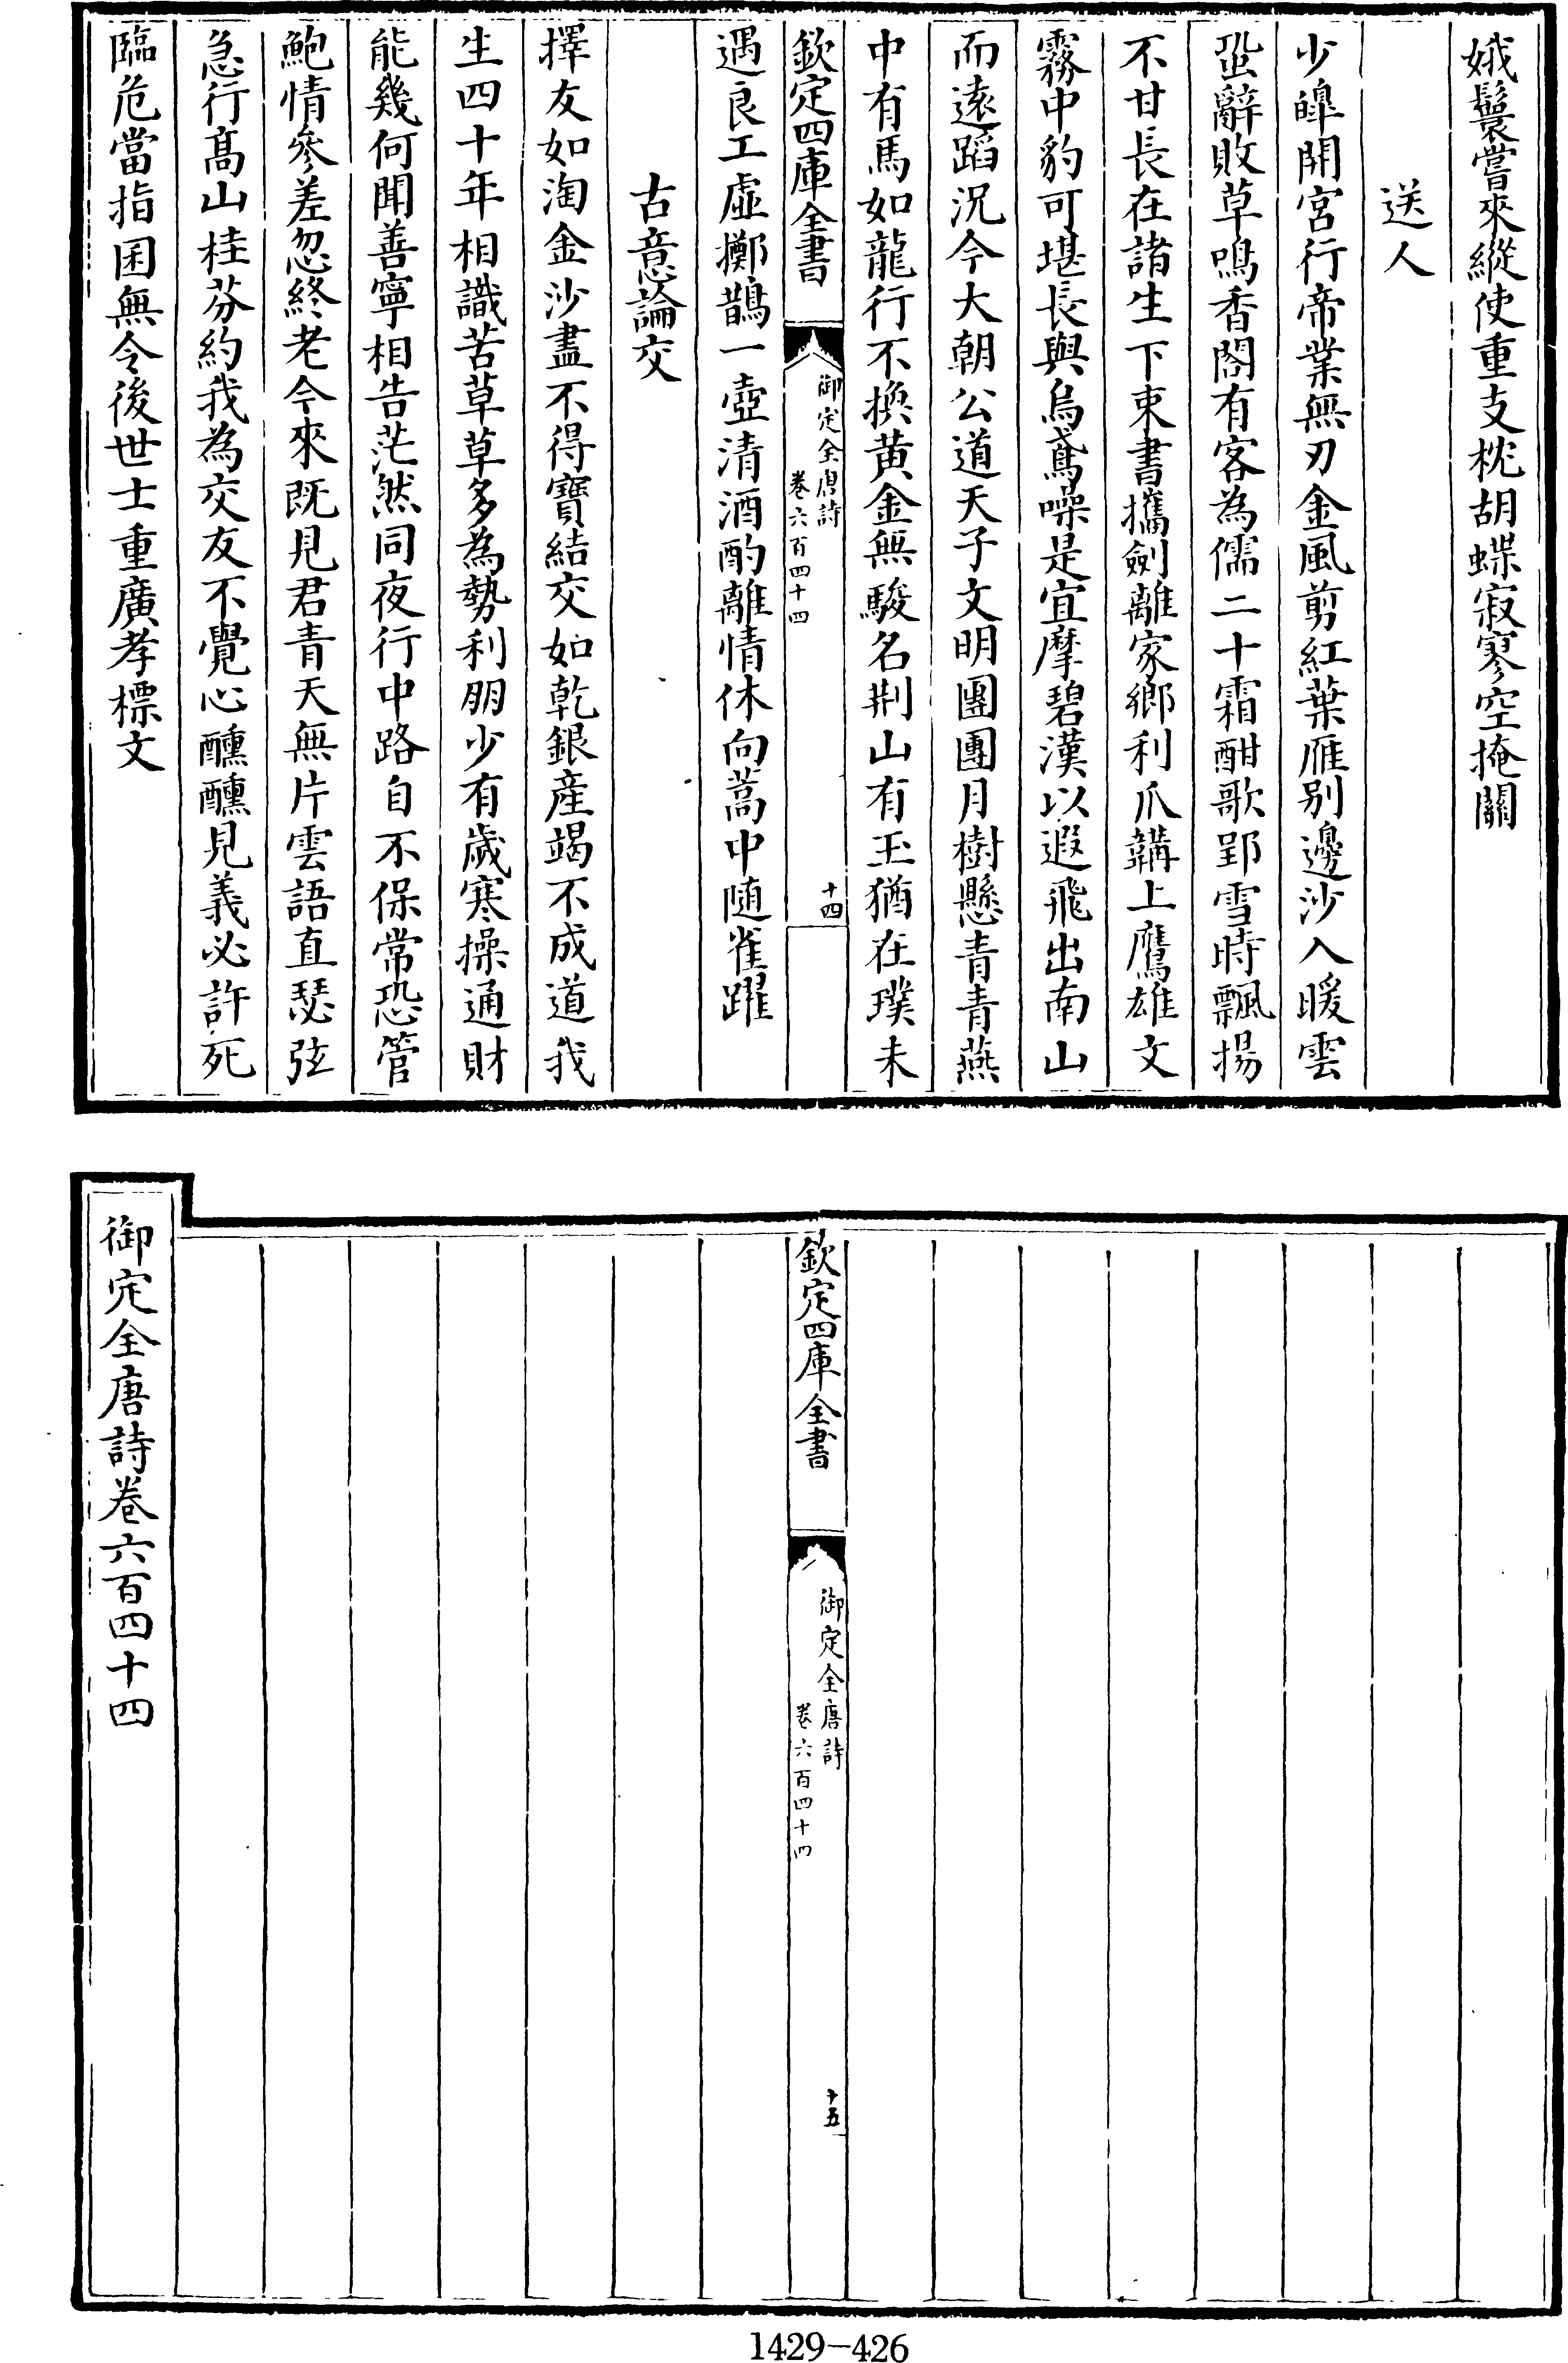 娥鬟嘗來縱使重支枕胡蝶寂寥空掩關
送人
少皥開宮行帝業無刃金風剪紅葉雁别邊沙入暖雲
蛩辭敗草鳴香閤有客為儒二十霜酣歌郢雪時飄揚
不甘長在諸生下束書攜劍離家鄉利爪鞲上鷹雄文
霧中豹可堪長與烏鳶噪是宜摩碧漢以遐飛出南山
而遠蹈況今大朝公道天子文明團團月樹懸青青燕
中有馬如龍行不換黄金無駿名荆山有玉猶在璞未
欽定四庫全書
御定全唐詩
卷六百四十四
十四
遇良工虛擲鵲一壺清酒酌離情休向蒿中随雀躍
古意論交
擇友如淘金沙盡不得寶結交如乾銀産竭不成道我
生四十年相識苦草草多為勢利朋少有歲寒操通財
能幾何聞善寧相告茫然同夜行中路自不保常恐管
鮑情參差忽終老今來既見君青天無片雲語直瑟弦
急行髙山桂芬約我為交友不覺心醺醺見義必許死
臨危當指囷無令後世士重廣孝標文
欽定四庫全書
御定全唐詩
卷六百四十四
十五
御定全唐詩卷六百四十四
1429-426